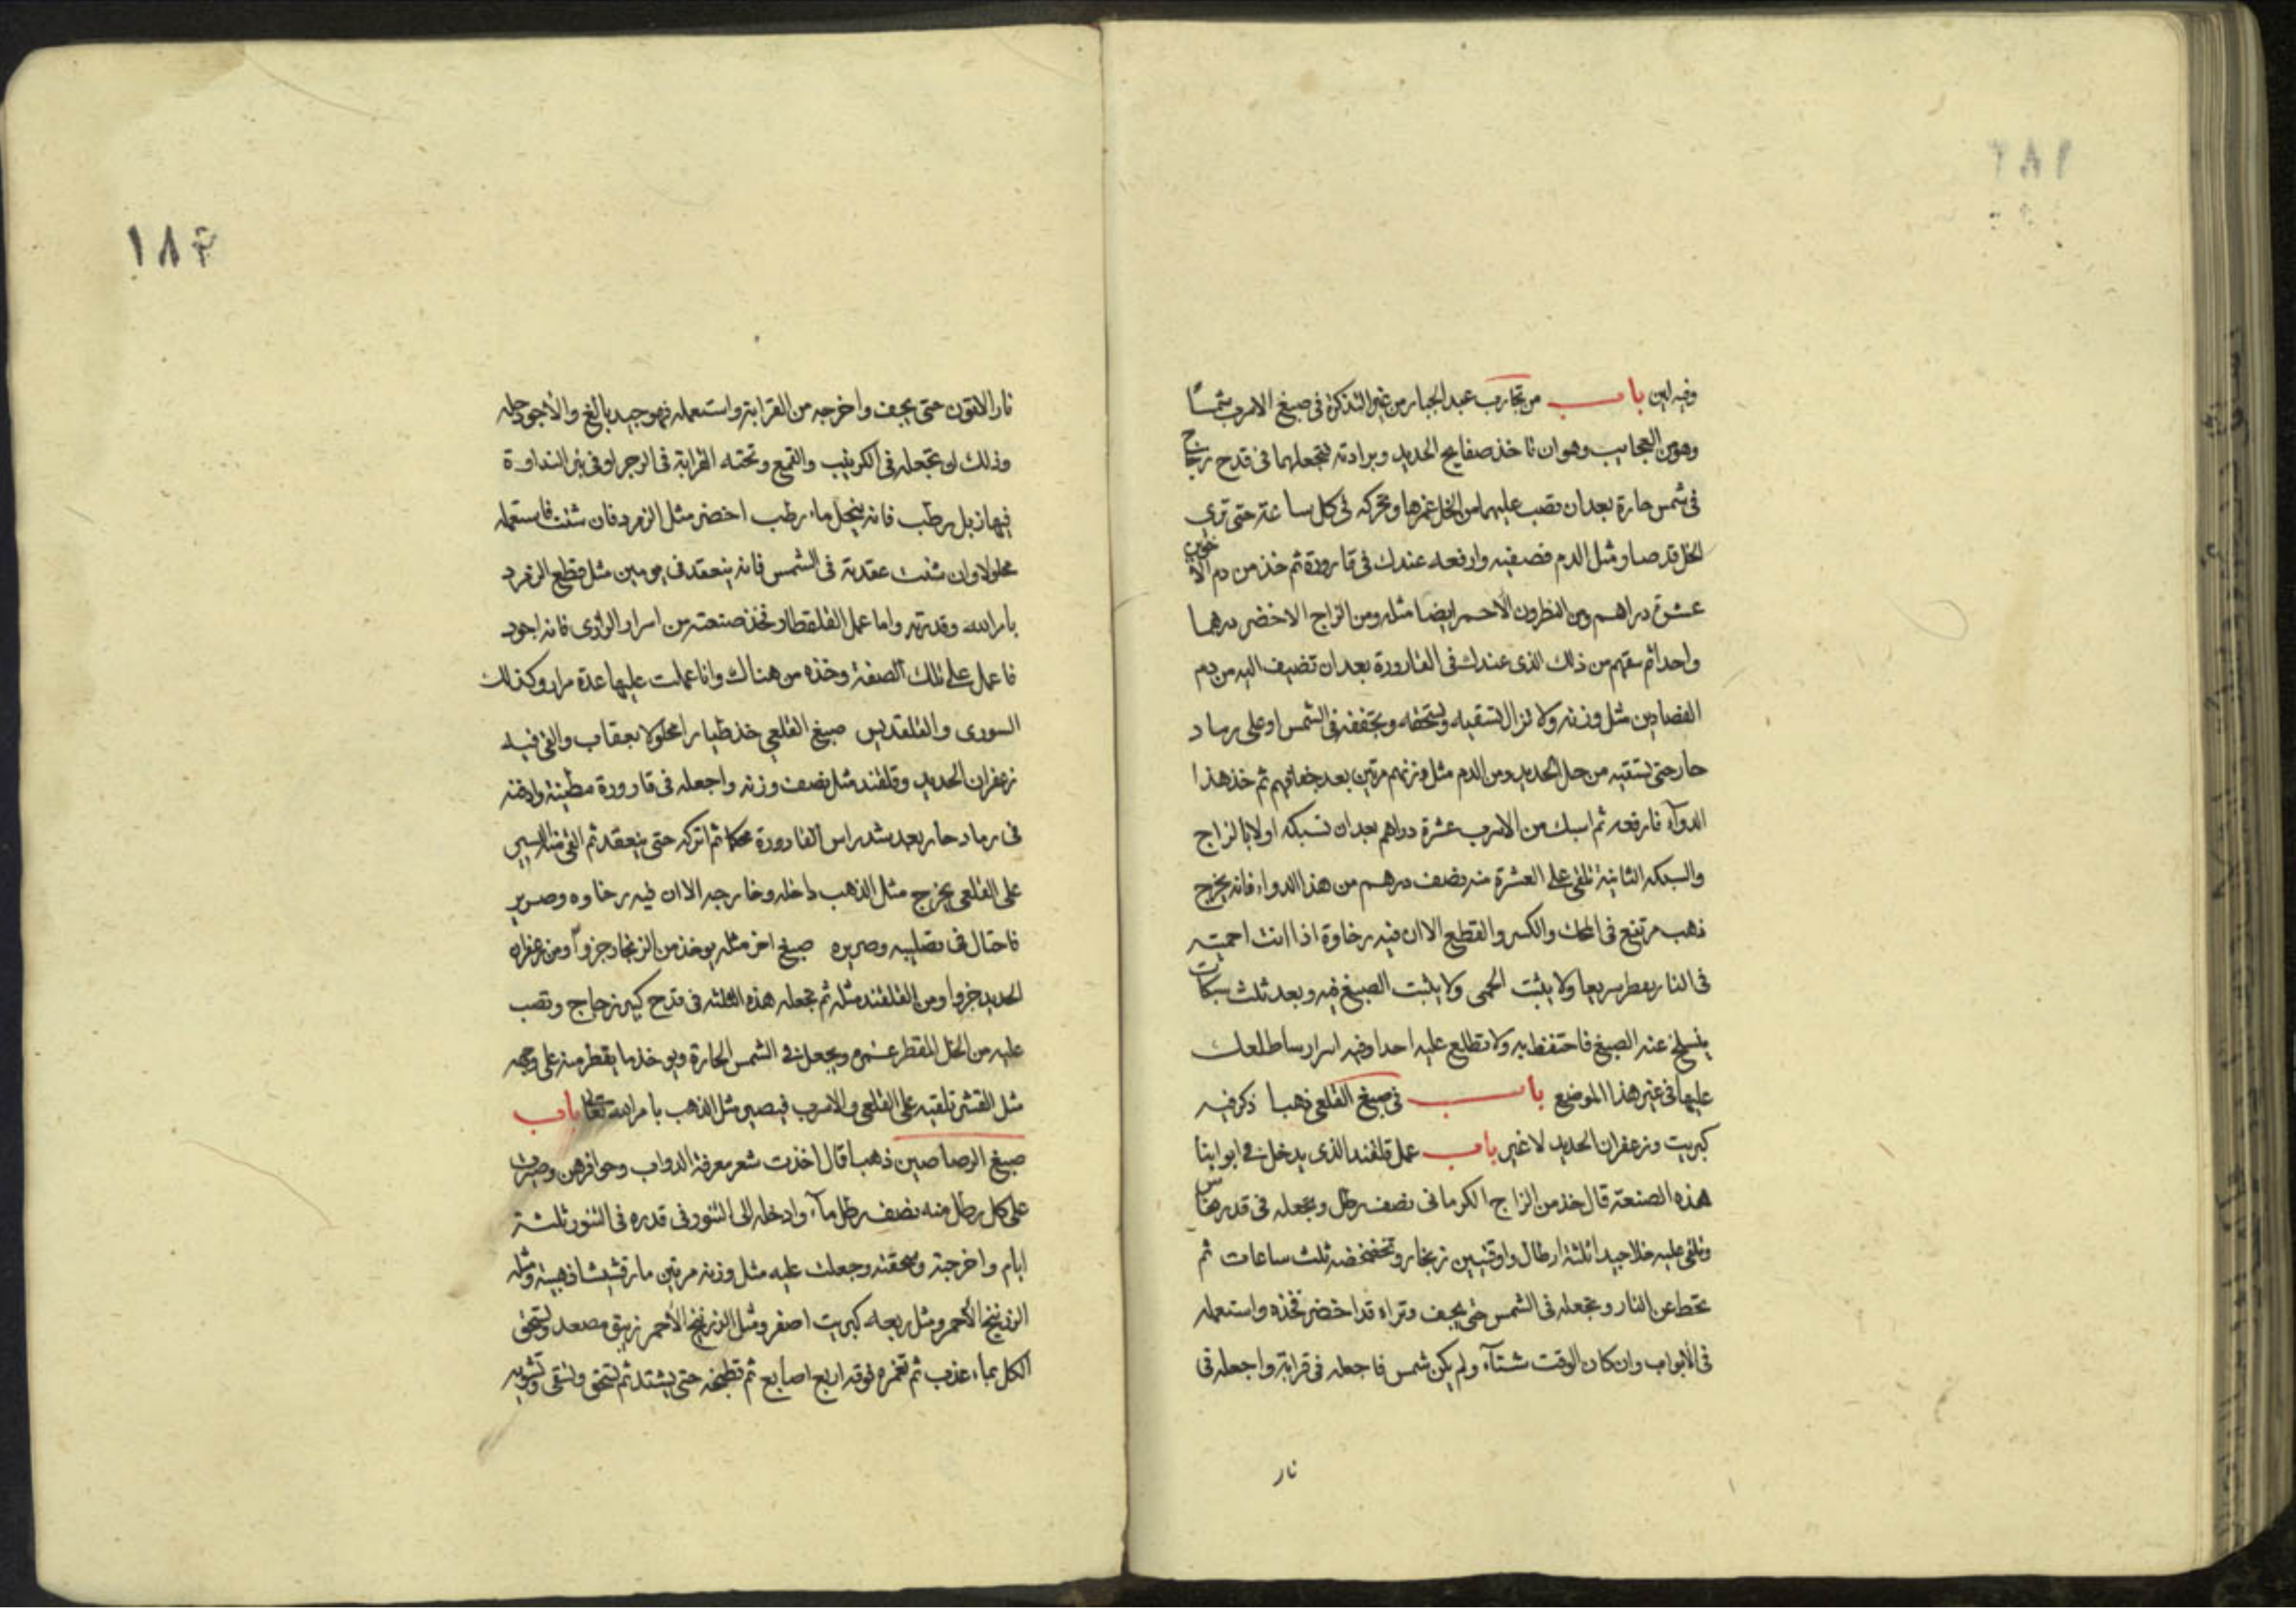 وفيه لين باب من تجارب عبد الجبار من غير التذكرة في صبغ الاسرب شمسًا
وهو من العجايب وهو ان تاخذ صفايح الحديد وبرادته فتجعلهما في قدح زجاج
في شمس حارة بعد ان تصب عليهما من الخل غمرها وتحركه في كل ساعة حتى تري
الخل قد صار مثل الدم فصفيه وارفعه عندك في قارورة ثم خذ من دم الاخوين
عشرة دراهم ومن النطرون الاحمر ايضا مثله ومن الزاج الاخضر درهما
واحدا ثم سقهم من ذلك الذي عندك في القارورة بعد ان تضيف اليه من دم
الفصادين مثل وزنه ولا تزال تسقيه وتسحقه وتجففه في الشمس او على رماد
حار حتى تسقيه من حل الحديد ومن الدم مثل وزنهم مرتين بعد جفافهم ثم خذ هذا
الدوآء فارفعه ثم اسبك من الاسرب عشرة دراهم بعد ان تسبكه اولا بالزاج
والسبكه الثانية تلقي على العشرة منه نصف درهم من هذا الدواء فانه يخرج
ذهب مرتفع في المحك والكسر والقطع الا ان فيه رخاوة اذا انت احميته
في النار يفطر سريعا ولا يثبت الحمى ولا يثبت الصبغ فيه وبعد ثلث سبكات
ينسلخ عنه الصبغ فاحتفظ به ولا تطلع عليه احدا وفيه اسرار ساطلعك
عليها في غير هذا الموضع باب في صبغ القلعي ذهبا ذكر فيه
كبريت وزعفران الحديد لا غير باب عمل قلقند الذي يدخل في ابوابنا
هذه الصنعة قال خذ من الزاج الكرماني نصف رطل وتجعله في قدر نحاس
وتلقي عليه خلا جيدا ثلثة ارطال واوقيتين زنجار وتخضخضه ثلث ساعات ثم
تحط عن النار وتجعله في الشمس حتى يجف وتراه قد اخضر فخذه واستعمله
في الأبواب وان كان الوقت شتآء ولم يكن شمس فاجعله في قرابة واجعله في
نار
١٨٢
نار الاتون حتى يجف واخرجه من القرابة واستعمله فهو جيد بالغ والأجود حله
وذلك ان تجعله في الكرنيب والقمع وتحته القرابة في الزجر او في بئر النداوة
فيها زبل رطب فانه ينحل ماء رطب اخضر مثل الزمرد فان شئت فاستعمله
محلولا وان شئت عقدته في الشمس فانه ينعقد في يومين مثل قطع الزمرد
بامر الله وقدرته واما عمل القلقطار فخذ صنعته من اسرار الرازي فانه اجود
فاعمل على تلك الصفة وخذه من هناك وانا عملت عليها عدة مرار وكذلك
السوري والقلقديس صبغ القلعي خذ طيارا محلولا بعقاب والقي فيه
زعفران الحديد وقلقند مثل نصف وزنه واجعله في قارورة مطينة وادفنه
في رماد حار بعد شد راس القارورة محكما ثم اتركه حتى ينعقد ثم القي منه اليسير
على القلعي يخرج مثل الذهب داخله وخارجه الا ان فيه رخاوه وصرير
فاحتال في تصليبه وصريره صبغ اخر مثله يوخذ من الزنجار جزوآ ومن زعفران
الحديد جزوا ومن القلقند مثله ثم تجعله هذه الثلثه في قدح كبير زجاج وتصب
عليه من الخل المقطر غمره ويجعل في الشمس الحارة ويوخذ ما يقطر منه على وجهه
مثل القشر تلقيه على القلعي والاسرب فيصير مثل الذهب بامر الله تعالى باب
صبغ الرصاصين ذهبا قال اخذت شعر معرفة الدواب وحوافرهن وصيرت
على كل رطل منه نصف رطل مآء وادخله الى التنور في قدره في التنور ثلثة
ايام واخرجته وسحقته وجعلت عليه مثل وزنه مرتين مارقشيشا ذهبية ومثله
الزرنيخ الأحمر ومثل ربعه كبريت اصفر ومثل الزرنيخ الأحمر زيبق مصعد وتسحق
الكل بماء عذب ثم تغمره فوقه اربع اصابع ثم تطبخه حتى يشتد ثم تسحق وتسقى وتشويه